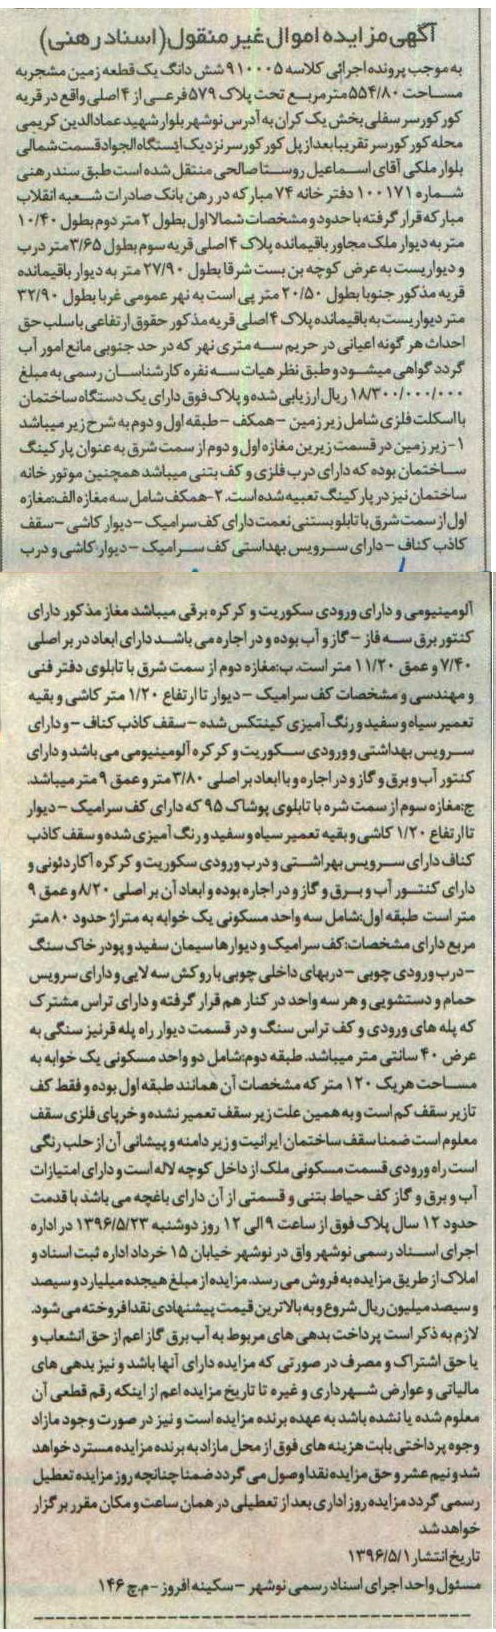 آگهی مزایده اموال غیر منقول (اسناد رهنی)
به موجب پرونده اجرائی کلاسه ۹۱۰۰۰۵ شش دانگ یک قطعه زمین مشجر به
مساحت ۵۵۴/۸۰ متر مربع تحت پلاک ۵۷۹ فرعی از ۴ اصلی واقع در قریه
کور کورسر سفلی بخش یک کران به آدرس نوشهر بلوار شهید عمادالدین کریمی
محله کور کورسر تقریبا بعد از پل کور کورسر نزدیک ایستگاه الجواد قسمت شمالی
بلوار ملکی آقای اسماعیل روستا صالحی منتقل شده است طبق سند رهنی
شماره ۱۰۰۱۷۱ دفتر خانه ۷۴ مبارکه در رهن بانک صادرات شعبه انقلاب
مبارکه قرار گرفته با حدود و مشخصات شمالا اول بطول ۲ متر دوم بطول ۱۰/۴۰
متر به دیوار ملک مجاور باقیمانده پلاک ۴ اصلی قریه سوم بطول ۳/۶۵ متر درب
و دیواریست به عرض کوچه بن بست شرقا بطول ۲۷/۹۰ متر به دیوار باقیمانده
قریه مذکور جنوبا بطول ۲۰/۵۰ متر پی است به نهر عمومی غربا بطول ۳۲/۹۰
متر دیواریست به باقیمانده پلاک ۴ اصلی قریه مذکور حقوق ارتفاعی با سلب حق
احداث هر گونه اعیانی در حریم سه متری نهر که در حد جنوبی مانع امور آب
گردد گواهی میشود و طبق نظر هیات سه نفره کارشناسان رسمی به مبلغ
۱۸/۳۰۰/۰۰۰/۰۰۰ ریال ارزیابی شده و پلاک فوق دارای یک دستگاه ساختمان
با اسکلت فلزی شامل زیر زمین – همکف – طبقه اول و دوم به شرح زیر میباشد
۱- زیر زمین در قسمت زیرین مغازه اول و دوم از سمت شرق به عنوان پارکینگ
ساختمان بوده که دارای درب فلزی و کف بتنی میباشد همچنین موتور خانه
ساختمان نیز در پارکینگ تعبیه شده است. ۲- همکف شامل سه مغازه الف: مغازه
اول از سمت شرق با تابلو بستنی نعمت دارای کف سرامیک – دیوار کاشی – سقف
کاذب کناف – دارای سرویس بهداستی کف سرامیک – دیوار کاشی و درب
آلومینیومی و دارای ورودی سکوریت و کرکره برقی میباشد مغاز مذکور دارای
کنتور برق سه فاز – گاز و آب بوده و در اجاره می باشد دارای ابعاد در بر اصلی
۷/۴۰ و عمق ۱۱/۲۰ متر است. ب: مغازه دوم از سمت شرق با تابلوی دفتر فنی
و مهندسی و مشخصات کف سرامیک – دیوار تا ارتفاع ۱/۲۰ متر کاشی و بقیه
تعمیر سیاه و سفید و رنگ آمیزی کینتکس شده – سقف کاذب کناف – و دارای
سرویس بهداشتی و ورودی سکوریت و کرکره آلومینیومی می باشد و دارای
کنتور آب و برق و گاز و در اجاره و با ابعاد بر اصلی ۳/۸۰ متر و عمق ۹ متر میباشد.
ج: مغازه سوم از سمت شره با تابلوی پوشاک ۹۵ که دارای کف سرامیک – دیوار
تا ارتفاع ۱/۲۰ کاشی و بقیه تعمیر سیاه و سفید و رنگ آمیزی شده و سقف کاذب
کناف دارای سرویس بهراشتی و درب ورودی سکوریت و کرکره آکاردئونی و
دارای کنتور آب و برق و گاز و در اجاره بوده و ابعاد آن بر اصلی ۸/۲۰ و عمق ۹
متر است طبقه اول: شامل سه واحد مسکونی یک خوابه به متراژ حدود ۸۰ متر
مربع دارای مشخصات: کف سرامیک و دیوارها سیمان سفید و پودر خاک سنگ
– درب ورودی چوبی – دربهای داخلی چوبی با روکش سه لایی و دارای سرویس
حمام و دستشویی و هر سه واحد در کنار هم قرار گرفته و دارای تراس مشترک
که پله های ورودی و کف تراس سنگ و در قسمت دیوار راه پله قرنیز سنگی به
عرض ۴۰ سانتی متر میباشد. طبقه دوم: شامل دو واحد مسکونی یک خوابه به
مساحت هریک ۱۲۰ متر که مشخصات آن همانند طبقه اول بوده و فقط کف
تا زیر سقف کم است و به همین علت زیر سقف تعمیر نشده و خرپای فلزی سقف
معلوم است ضمنا سقف ساختمان ایرانیت و زیر دامنه و پیشانی آن از حلب رنگی
است راه ورودی قسمت مسکونی ملک از داخل کوچه لاله است و دارای امتیازات
آب و برق و گاز کف حیاط بتنی و قسمتی از آن دارای باغچه می باشد با قدمت
حدود ۱۲ سال پلاک فوق از ساعت ۹ الی ۱۲ روز دوشنبه ۱۳۹۶/۵/۲۳ در اداره
اجرای اسناد رسمی نوشهر واق در نوشهر خیابان ۱۵ خرداد اداره ثبت اسناد و
املاک از طریق مزایده به فروش می رسد. مزایده از مبلغ هیجده میلیارد و سیصد
و سیصد میلیون ریال شروع و به بالاترین قیمت پیشنهادی نقدا فروخته می شود.
لازم به ذکر است پرداخت بدهی های مربوط به آب برق گاز اعم از حق انشعاب و
یا حق اشتراک و مصرف در صورتی که مزایده دارای آنها باشد و نیز بدهی های
مالیاتی و عوارض شهرداری و غیره تا تاریخ مزایده اعم از اینکه رقم قطعی آن
معلوم شده یا نشده باشد به عهده برنده مزایده است و نیز در صورت وجود مازاد
وجوه پرداختی بابت هزینه های فوق از محل مازاد به برنده مزایده مسترد خواهد
شد و نیم عشر و حق مزایده نقدا وصول می گردد ضمنا چنانچه روز مزایده تعطیل
رسمی گردد مزایده روز اداری بعد از تعطیلی در همان ساعت و مکان مقرر برگزار
خواهد شد
تاریخ انتشار ۱۳۹۶/۵/۱
مسئول واحد اجرای اسناد رسمی نوشهر – سکینه افروز – م.چ ۱۴۶